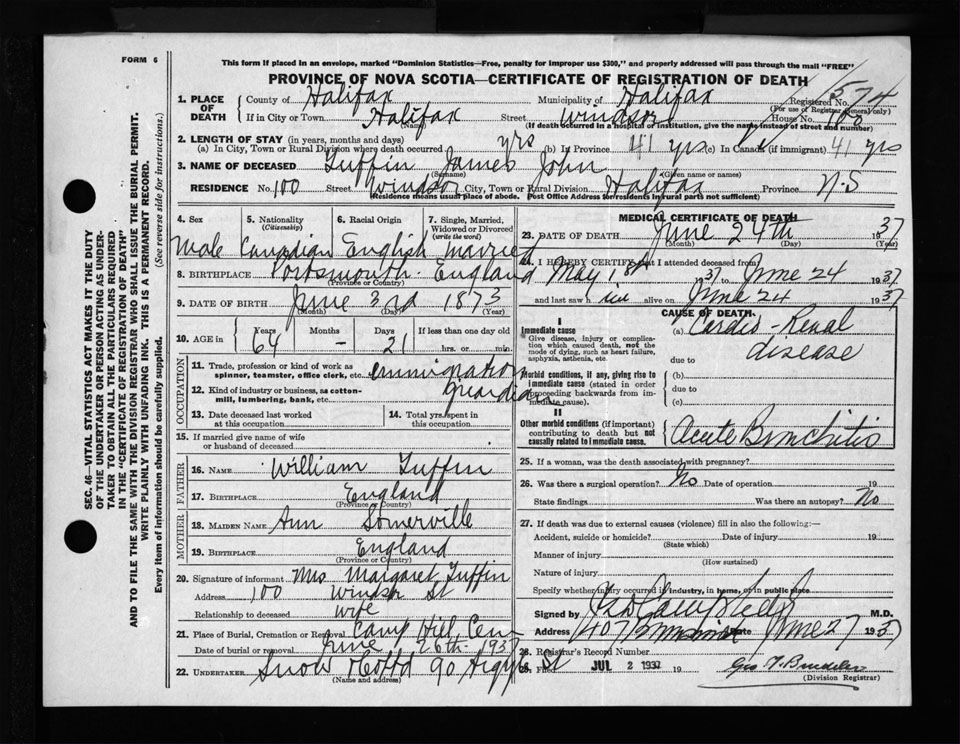 FORM 6
This form if placed in an envelope, marked "Dominion Statistics—Free, penalty for improper use $300," and properly addressed will pass through the mail "FREE"
PROVINCE OF NOVA SCOTIA—CERTIFICATE OF REGISTRATION OF DEATH
574
1. PLACE OF DEATH
County of Halifax Municipality of Halifax Registered No.
(For use of Registrar General only)
If in City or Town Halifax Street Windsor House No. 100
(Name)
(If death occurred in a hospital or institution, give the name instead of street and number)
2. LENGTH OF STAY (in years, months and days)
(a) In City, Town or Rural Division where death occurred yrs (b) In Province 41 yrs (c) In Canada (if immigrant) 41 yrs
3. NAME OF DECEASED Tuffin James John
(Surname) (Given name or names)
RESIDENCE No. 100 Street Windsor City, Town or Rural Division Halifax Province N.S
(Residence means usual place of abode. Post Office Address for residents in rural parts not sufficient)
4. Sex 5. Nationality (Citizenship) 6. Racial Origin 7. Single, Married, Widowed or Divorced (write the word)
Male Canadian English Married
8. BIRTHPLACE Portsmouth England
(Province or Country)
9. DATE OF BIRTH June 3rd 1873
(Month) (Day) (Year)
10. AGE in Years Months Days If less than one day old
64 – 21 hrs. or min.
OCCUPATION
11. Trade, profession or kind of work as spinner, teamster, office clerk, etc. immigration
12. Kind of industry or business, as cotton-mill, lumbering, bank, etc. guardian
13. Date deceased last worked at this occupation
14. Total yrs. spent in this occupation
15. If married give name of wife or husband of deceased
FATHER
16. NAME William Tuffin
17. BIRTHPLACE England
(Province or Country)
MOTHER
18. MAIDEN NAME Ann Somerville
19. BIRTHPLACE England
(Province or Country)
20. Signature of informant Mrs Margaret Tuffin
Address 100 Windsor St
Relationship to deceased wife
21. Place of Burial, Cremation or Removal Camp Hill Cem
Date of burial or removal June 26th 1937
22. UNDERTAKER Snow & Co Ltd 90 Argyle St
(Name and address)
MEDICAL CERTIFICATE OF DEATH
23. DATE OF DEATH June 24th 1937
(Month) (Day) (Year)
24. I HEREBY CERTIFY that I attended deceased from
May 18th 1937 to June 24 1937
and last saw him alive on June 24 1937
CAUSE OF DEATH
I
Immediate cause
Give disease, injury or complication which caused death, not the mode of dying, such as heart failure, asphyxia, asthenia, etc.
(a) Cardio-Renal disease
due to
Morbid conditions, if any, giving rise to immediate cause (stated in order proceeding backwards from immediate cause).
(b)
due to
(c)
II
Other morbid conditions (if important) contributing to death but not causally related to immediate cause.
Acute Bronchitis
25. If a woman, was the death associated with pregnancy?
26. Was there a surgical operation? No Date of operation 19
State findings Was there an autopsy? No
27. If death was due to external causes (violence) fill in also the following:—
Accident, suicide or homicide? Date of injury 19
(State which)
Manner of injury
(How sustained)
Nature of injury
Specify whether injury occurred in industry, in home, or in public place
Signed by Campbell M.D.
Address 407 Date June 27 1937
28. Registrar's Record Number
Filed JUL 2 1937 19
(Division Registrar)
SEC. 46—VITAL STATISTICS ACT MAKES IT THE DUTY
OF THE UNDERTAKER OR PERSON ACTING AS UNDER-
TAKER TO OBTAIN ALL THE PARTICULARS REQUIRED
IN THE "CERTIFICATE OF REGISTRATION OF DEATH"
AND TO FILE THE SAME WITH THE DIVISION REGISTRAR WHO SHALL ISSUE THE BURIAL PERMIT.
WRITE PLAINLY WITH UNFADING INK. THIS IS A PERMANENT RECORD.
Every item of information should be carefully supplied. (See reverse side for instructions.)